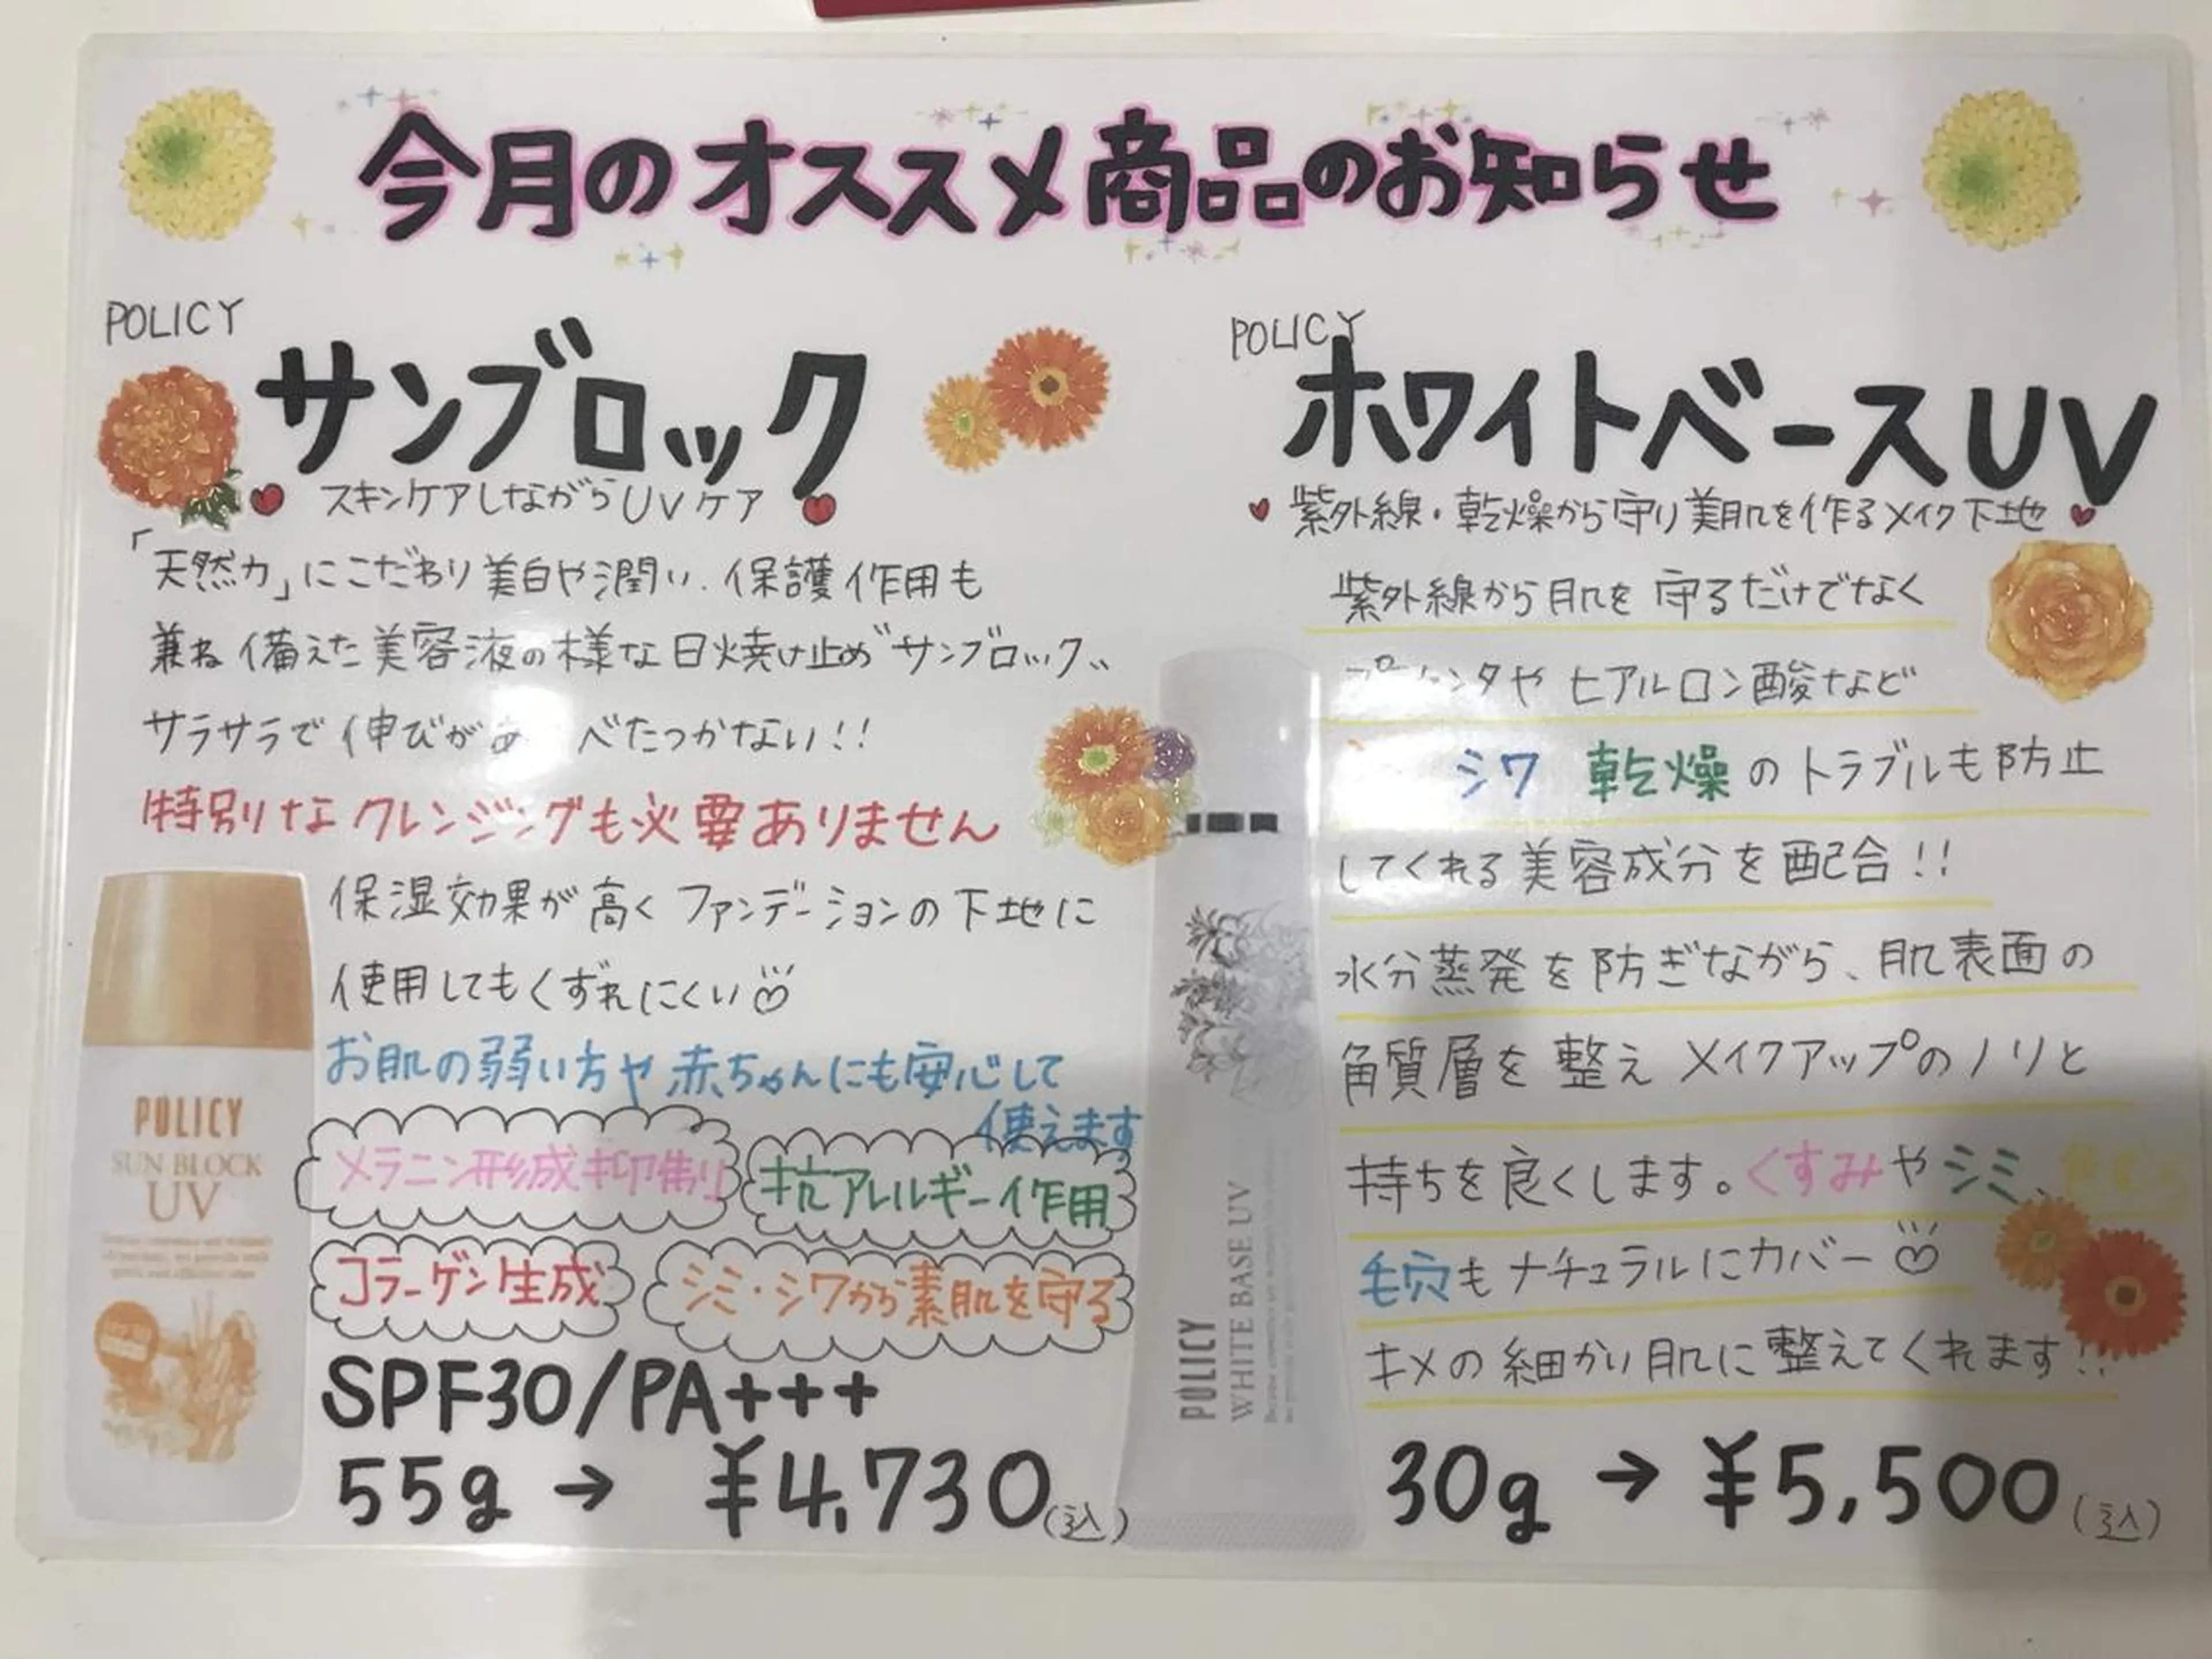 今月のオススメ商品のお知らせ
POLICY
サンブロック
スキンケアしながらUVケア
「天然力」にこだわり美白や潤い、保護作用も
兼ね備えた美容液の様な日焼け止め"サンブロック"
サラサラで伸びが べたつかない!!
特別なクレンジングも必要ありません
保湿効果が高くファンデーションの下地に
使用してもくずれにくい
お肌の弱い方や赤ちゃんにも安心して
使えます
メラニン形成抑制
抗アレルギー作用
コラーゲン生成
シミ・シワから素肌を守る
SPF30/PA+++
55g → ¥4,730(込)
POLICY
SUN BLOCK
UV
POLICY
ホワイトベースUV
紫外線・乾燥から守り美肌を作るメイク下地
紫外線から肌を守るだけでなく
プラセンタやヒアルロン酸など
シワ 乾燥のトラブルも防止
してくれる美容成分を配合!!
水分蒸発を防ぎながら、肌表面の
角質層を整えメイクアップのノリと
持ちを良くします。くすみやシミ、
毛穴もナチュラルにカバー
キメの細かい肌に整えてくれます!!
30g → ¥5,500(込)
POLICY
WHITE BASE UV